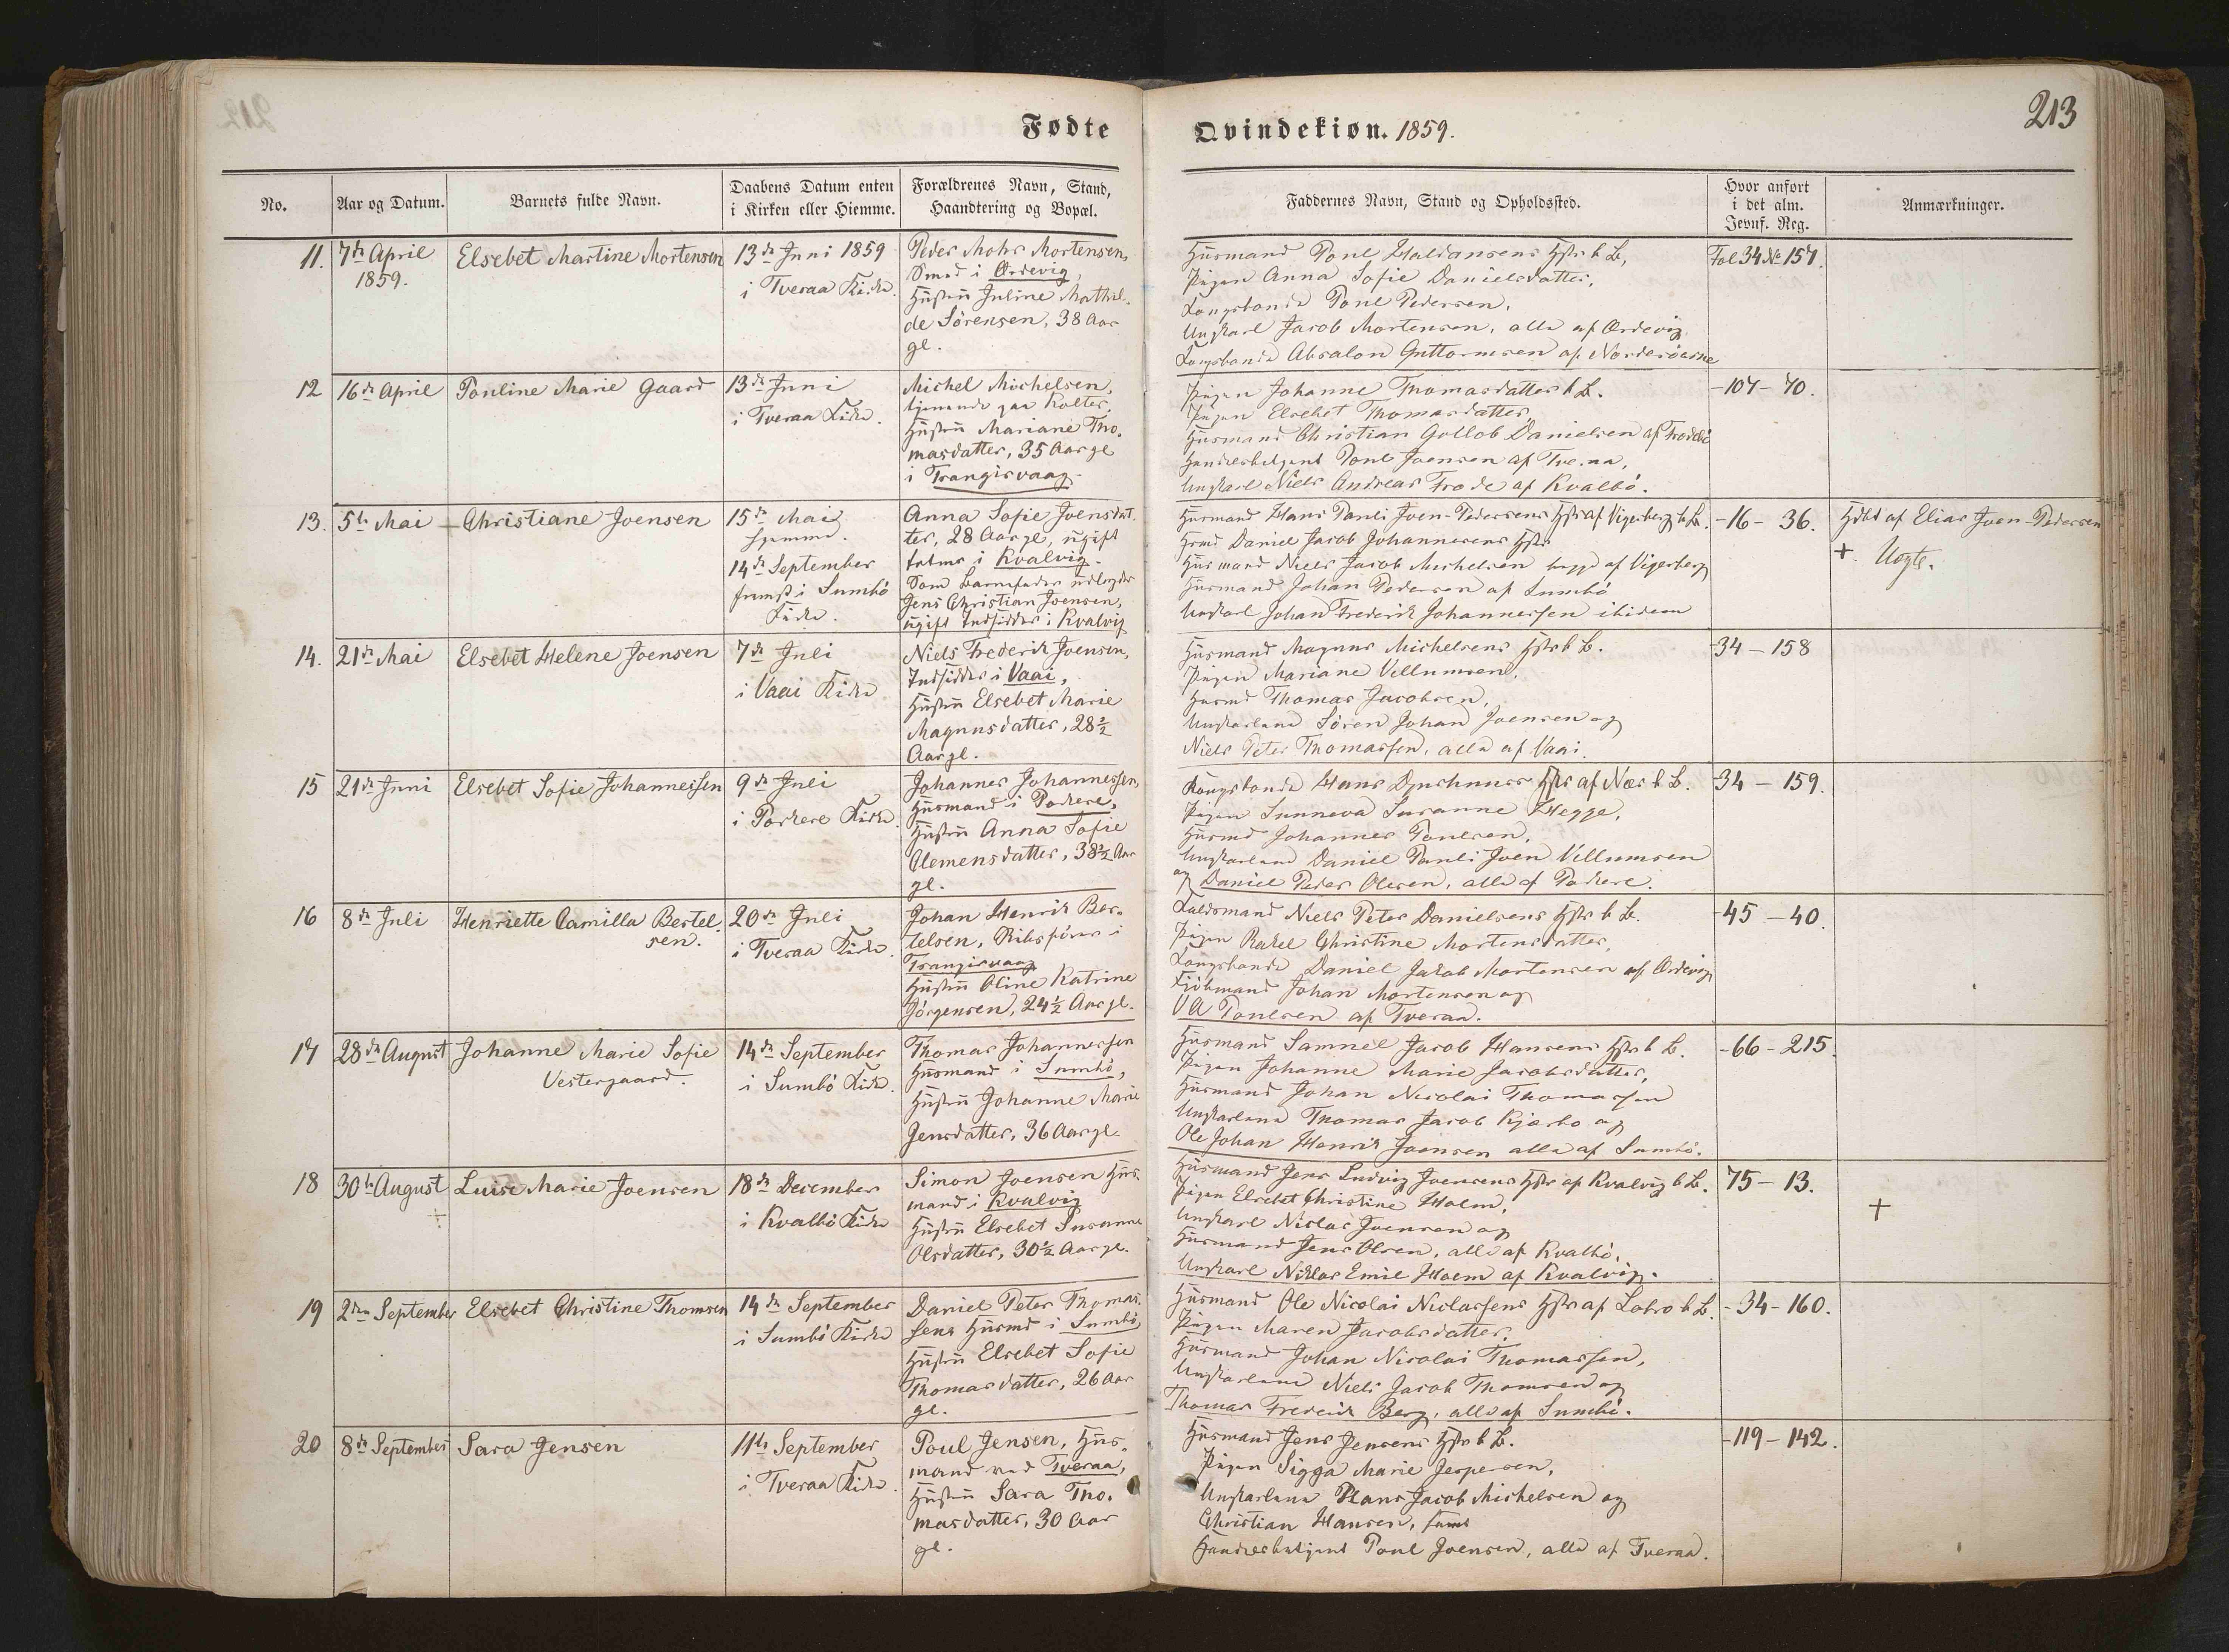 213
Fødte
Qvindekiøn. 1859.
No.
Aar og Datum.
Barnets fulde Navn.
Daabens Datum enten
i Kirken eller Hiemme.
Forældrenes Navn, Stand,
Haandtering og Bopæl.
Faddernes Navn, Stand og Opholdssted.
Hvor anført
i det alm.
Jevnf. Reg.
Anmærkninger.
11.
7de April
1859.
Elsebet Martine Mortensen
13de Juni 1859
i Tveraa Kirke.
Peder Mohr Mortensen,
Smed i Ördevig,
Hustru Juline Mathil-
de Sörensen, 38 Aar
gl.
Husmand Poul Haldansens Hstr b. B.,
Pigen Anna Sofie Danielsdatter,
Kongsbonde Poul Pedersen,
Ungkarl Jacob Mortensen, alle af Ördevig
Kongsbonde Absalon Guttormsen af Norderöerne
Fol 34 No 157.
12
16de April
Pouline Marie Gaard
13de Juni
i Tveraa Kirke.
Michel Michelsen,
tjenende paa Kolter,
Hustru Mariane Tho-
masdatter, 35 Aar gl
i Trangisvaag.
Pigen Johanne Thomasdatter b. B.
Pigen Elsebet Thomasdatter,
Husmand Christian Gollob Danielsen af Frodebö
Handelsbetjent Poul Joensen af Tveraa,
Ungkarl Niels Andreas Frode af Kvalbö.
-107-70.
13.
5te Mai
Christiane Joensen
15de Mai
hjemme.
14de September
fremst i Sumbö
Kirke.
Anna Sofie Joensdat-
ter, 28 Aar gl, ugift
i Kvalvig.
Som Barnefader udlagdes
Jens Christian Joensen,
ugift Indsidder i Kvalvig
Husmand Hans Pauli Joen-Pedersens Hstr af Vigerberg b. B.
Hsmd Daniel Jacob Johannesens Hstr
Husmand Niels Jacob Michelsen begge af Vigerberg
Husmand Johan Pedersen af Sumbö
Ungkarl Johan Frederik Johannessen ibidem
-16-36.
af Elias Joen-Pedersen
+. Uægte.
14.
21de Mai
Elsebet Helene Joensen
7de Juli
i Vaai Kirke
Niels Frederik Joensen,
Indsidder i Vaai,
Hustru Elsebet Marie
Magnusdatter, 28½
Aar gl.
Husmand Magnus Michelsens Hstr b. B.
Pigen Mariane Villumsen,
Husmd Thomas Jacobsen,
Ungkarlene Sören Johan Joensen og
Niels Peter Thomassen, alle af Vaai.
-34-158
15
21de Juni
Elsebet Sofie Johannessen
9de Juli
i Porkere Kirke.
Johannes Johannessen,
Husmand i Porkere,
Hustru Anna Sofie
Clemensdatter, 38½ Aar
gl.
Kongsbonde Hans Djurhuus Hstr af Næs b. B.
Pigen Sunneva Susanne Hegge,
Husmd Johannes Poulsen,
Ungkarlene Daniel Pauli Joen Villumsen
og Daniel Peder Olesen, alle af Porkere.
-34-159.
16
8de Juli
Henriette Camilla Bertel-
sen.
20de Juli
i Tveraa Kirke.
Johan Henrik Ber-
telsen, Skibsförer i
Trangisvaag
Hustru Oline Katrine
Jörgensen, 24½ Aar gl.
Niels Peter Danielsens Hstr b. B.
Pigen Rakel Christine Mortensdatter,
Kongsbonde Daniel Jakob Mortensen af Ördevig
Kjöbmand Johan Mortensen og
V A Poulsen af Tveraa.
-45-40.
17
28de August
Johanne Marie Sofie
Vestergaard.
14de September
i Sumbö Kirke.
Thomas Johannessen
Husmand i Sumbö,
Hustru Johanne Marie
Jensdatter, 36 Aar gl.
Husmand Samuel Jacob Hansens Hstr b. B.
Pigen Johanne Marie Jacobsdatter,
Husmand Johan Nicolai Thomassen
Ungkarlene Thomas Jacob Kjærbo og
Ole Johan Henrik Joensen alle af Sumbö.
-66-215.
18
30te August
+
Luise Marie Joensen
18de December
i Kvalbö Kirke
Simon Joensen Hus-
mand i Kvalvig
Hustru Elsebet Susanne
Olsdatter, 30½ Aar gl.
Husmand Jens Ludvig Joensens Hstr af Kvalvig b. B.
Pigen Elsebet Christine Holm,
Ungkarl Niclas Joensen og
Husmand Jens Olsen, alle af Kvalbö,
Ungkarl Niklas Emil Holm af Kvalvig.
75-13.
+
19
2den September
Elsebet Christine Thomsen
14de September
i Sumbö Kirke
Daniel Peter Thomas-
sens Husmd i Sumbö
Hustru Elsebet Sofie
Thomasdatter, 26 Aar
gl.
Husmand Ole Nicolai Niclassens Hstr af Lobro b. B.
Pigen Maren Jacobsdatter,
Husmand Johan Nicolai Thomassen,
Ungkarlene Niels Jacob Thomsen og
Thomas Frederik Berg, alle af Sumbö.
-34-160.
20
8de September
Sara Jensen
11te September
i Tveraa Kirke.
Poul Jensen, Hus-
mand ved Tveraa,
Hustru Sara Tho-
masdatter, 30 Aar
gl.
Husmand Jens Jensens Hstr b. B.
Pigen Sigga Marie Jespersen,
Ungkarlene Hans Jacob Michelsen og
Christian Hansen, samt
Handelsbetjent Poul Joensen, alle af Tveraa.
-119-142.